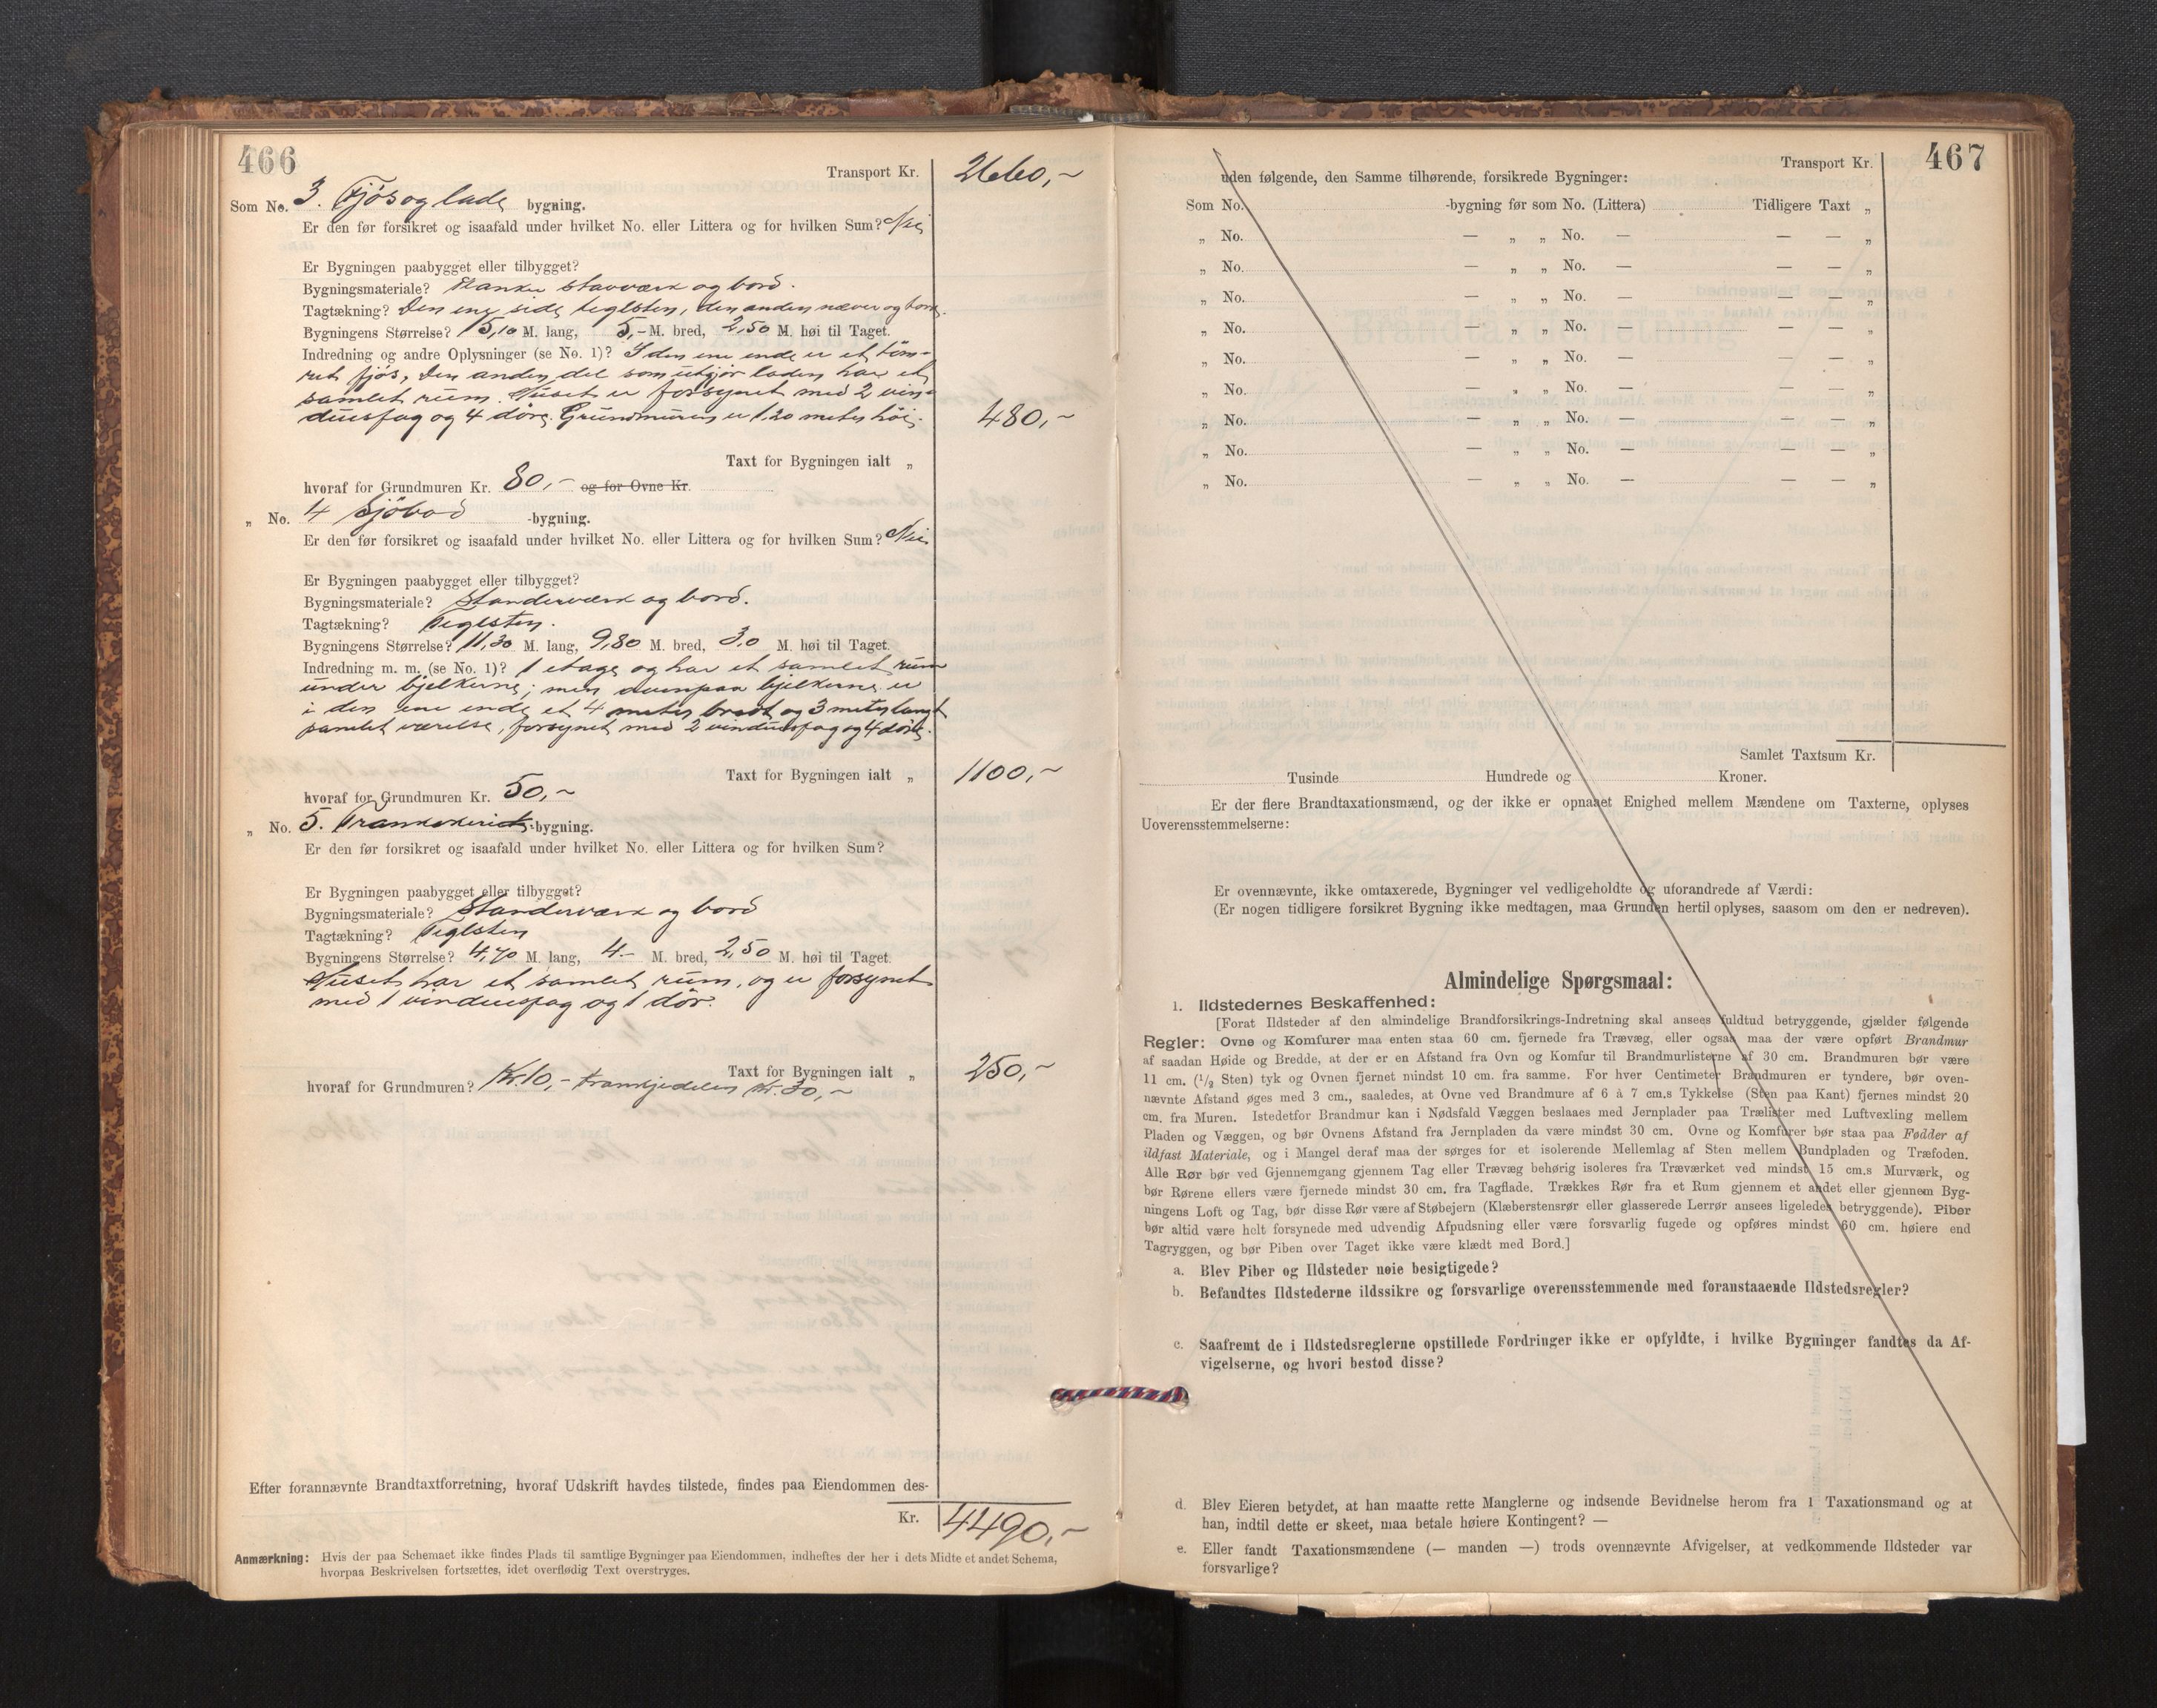 466
Transport Kr. 2660,-
Som No. 3. Fjös og lade bygning.
Er den før forsikret og isaafald under hvilket No. eller Littera og for hvilken Sum? Nei
Er Bygningen paabygget eller tilbygget?
Bygningsmateriale? Planke stavværk og bord.
Tagtækning? Den ene side teglsten, den anden næver og bord.
Bygningens Størrelse? 15,10 M. lang, 5,- M. bred, 2,50 M. høi til Taget.
Indredning og andre Oplysninger (se No. 1)? I den ene ende er et töm-
ret fjös, Den anden del som utgjör laden har et
samlet rum. Huset er forsynet med 2 vin-
duesfag og 4 döre. Grundmuren er 1,20 meter höi. 480,-
Taxt for Bygningen ialt „
hvoraf for Grundmuren Kr. 80,- og for Ovne Kr.
„ No. 4 Sjöbod -bygning.
Er den før forsikret og isaafald under hvilket No. eller Littera og for hvilken Sum? Nei
Er Bygningen paabygget eller tilbygget?
Bygningsmateriale? Standerværk og bord.
Tagtækning? Teglsten.
Bygningens Størrelse? 11,30 M. lang, 9,80 M. bred, 3,0 M. høi til Taget.
Indredning m. m. (se No. 1)? 1 etage og har et samlet rum
under bjelkerne; men ovenpaa bjelkerne er
i den ene ende et 4 meter bredt og 3 meter langt
panelet værelse, forsynet med 2 vinduesfag og 4 döre.
Taxt for Bygningen ialt „ 1100,-
hvoraf for Grundmuren Kr. 50,-
„ No. 5. Trankokeri -bygning.
Er den før forsikret og isaafald under hvilket No. eller Littera og for hvilken Sum?
Er Bygningen paabygget eller tilbygget?
Bygningsmateriale? Standerværk og bord
Tagtækning? Teglsten
Bygningens Størrelse? 4,70 M. lang, 4.- M. bred, 2,50 M. høi til Taget.
Huset har et samlet rum, og er forsynet
med 1 vinduesfag og 1 dör.
Taxt for Bygningen ialt „ 250,-
hvoraf for Grundmuren? Kr. 10,- trankjedelen Kr. 30,-
Efter forannævnte Brandtaxtforretning, hvoraf Udskrift havdes tilstede, findes paa Eiendommen des-
Kr. 4490,-
Anmærkning: Hvis der paa Schemaet ikke findes Plads til samtlige Bygninger paa Eiendommen, indheftes der her i dets Midte et andet Schema,
hvorpaa Beskrivelsen fortsættes, idet overflødig Text overstryges.
467
Transport Kr.
uden følgende, den Samme tilhørende, forsikrede Bygninger:
Som No. -bygning før som No. (Littera) Tidligere Taxt „
„ No. — „ „ No. — — — „
„ No. — „ „ No. — — — „
„ No. — „ „ No. — — — „
„ No. — „ „ No. — — — „
„ No. — „ „ No. — — — „
„ No. — „ „ No. — — — „
„ No. — „ „ No. — — — „
„ No. — „ „ No. — — — „
„ No. — „ „ No. — — — „
Samlet Taxtsum Kr.
Tusinde Hundrede og Kroner.
Er der flere Brandtaxationsmænd, og der ikke er opnaaet Enighed mellem Mændene om Taxterne, oplyses
Uoverensstemmelserne:
Er ovennævnte, ikke omtaxerede, Bygninger vel vedligeholdte og uforandrede af Værdi:
(Er nogen tidligere forsikret Bygning ikke medtagen, maa Grunden hertil oplyses, saasom om den er nedreven).
Almindelige Spørgsmaal:
1. Ildstedernes Beskaffenhed:
[Forat Ildsteder af den almindelige Brandforsikrings-Indretning skal ansees fuldtud betryggende, gjælder følgende
Regler: Ovne og Komfurer maa enten staa 60 cm. fjernede fra Trævæg, eller ogsaa maa der være opført Brandmur
af saadan Høide og Bredde, at der er en Afstand fra Ovn og Komfur til Brandmurlisterne af 30 cm. Brandmuren bør være
11 cm. (1/2 Sten) tyk og Ovnen fjernet mindst 10 cm. fra samme. For hver Centimeter Brandmuren er tyndere, bør oven-
nævnte Afstand øges med 3 cm., saaledes, at Ovne ved Brandmure af 6 à 7 cm.s Tykkelse (Sten paa Kant) fjernes mindst 20
cm. fra Muren. Istedetfor Brandmur kan i Nødsfald Væggen beslaaes med Jernplader paa Trælister med Luftvexling mellem
Pladen og Væggen, og bør Ovnens Afstand fra Jernpladen da være mindst 30 cm. Ovne og Komfurer bør staa paa Fødder af
ildfast Materiale, og i Mangel deraf maa der sørges for et isolerende Mellemlag af Sten mellem Bundpladen og Træfoden.
Alle Rør bør ved Gjennemgang gjennem Tag eller Trævæg behørig isoleres fra Træværket ved mindst 15 cm.s Murværk, og
bør Rørene ellers være fjernede mindst 30 cm. fra Tagflade. Trækkes Rør fra et Rum gjennem et andet eller gjennem Byg-
ningens Loft og Tag, bør disse Rør være af Støbejern (Klæberstensrør eller glasserede Lerrør ansees ligeledes betryggende). Piber
bør altid være helt forsynede med udvendig Afpudsning eller være forsvarlig fugede og opføres mindst 60 cm. høiere end
Tagryggen, og bør Piben over Taget ikke være klædt med Bord.]
a. Blev Piber og Ildsteder nøie besigtigede?
b. Befandtes Ildstederne ildssikre og forsvarlige overensstemmende med foranstaaende Ildstedsregler?
c. Saafremt de i Ildstedsreglerne opstillede Fordringer ikke er opfyldte, i hvilke Bygninger fandtes da Af-
vigelserne, og hvori bestod disse?
d. Blev Eieren betydet, at han maatte rette Manglerne og indsende Bevidnelse herom fra 1 Taxationsmand og at
han, indtil dette er skeet, maa betale høiere Kontingent? —
e. Eller fandt Taxationsmændene (— manden —) trods ovennævnte Afvigelser, at vedkommende Ildsteder var
forsvarlige?